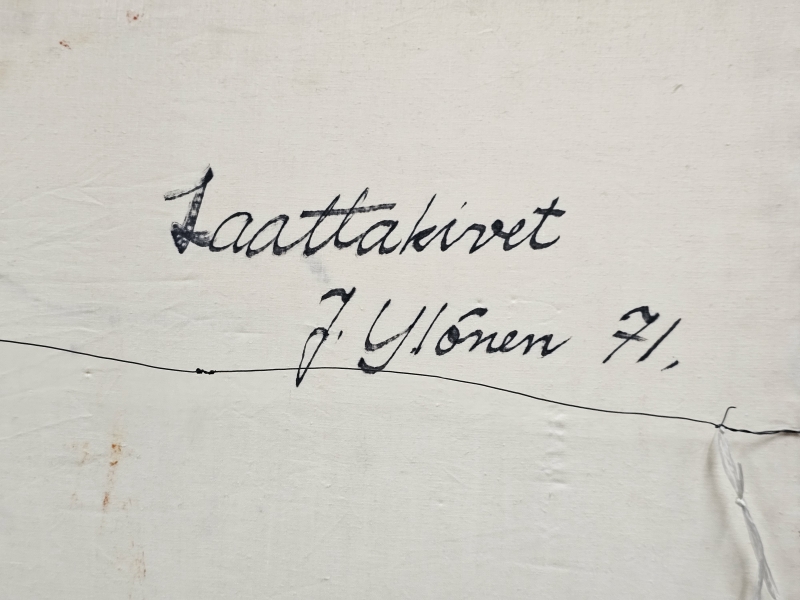 Laattakivet
J. Ylönen 71.